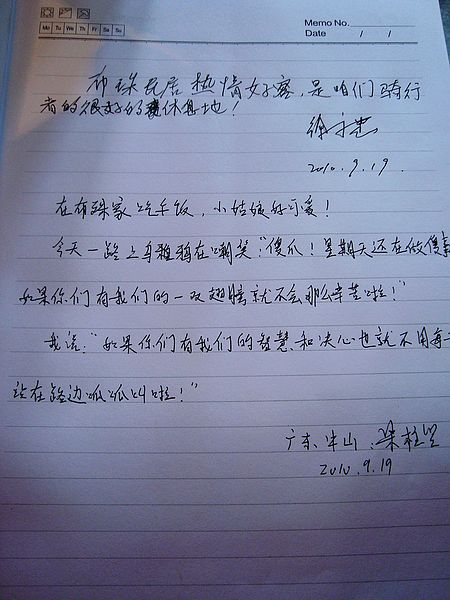 Memo No.
Mo Tu We Th Fr Sa Su
Date / /
布珠民居热情好客,是咱们骑行
者的很好的休息地!
2010.9.19.
在布珠家吃午饭,小姑娘好可爱!
今天一路上乌鸦在嘲笑:"傻瓜!星期天还在做傻事
如果你们有我们的一双翅膀就不会那么辛苦啦!"
我说:"如果你们有我们的智慧和决心也就不用每天
站在路边呱呱叫啦!"
广东.中山.梁
2010.9.19